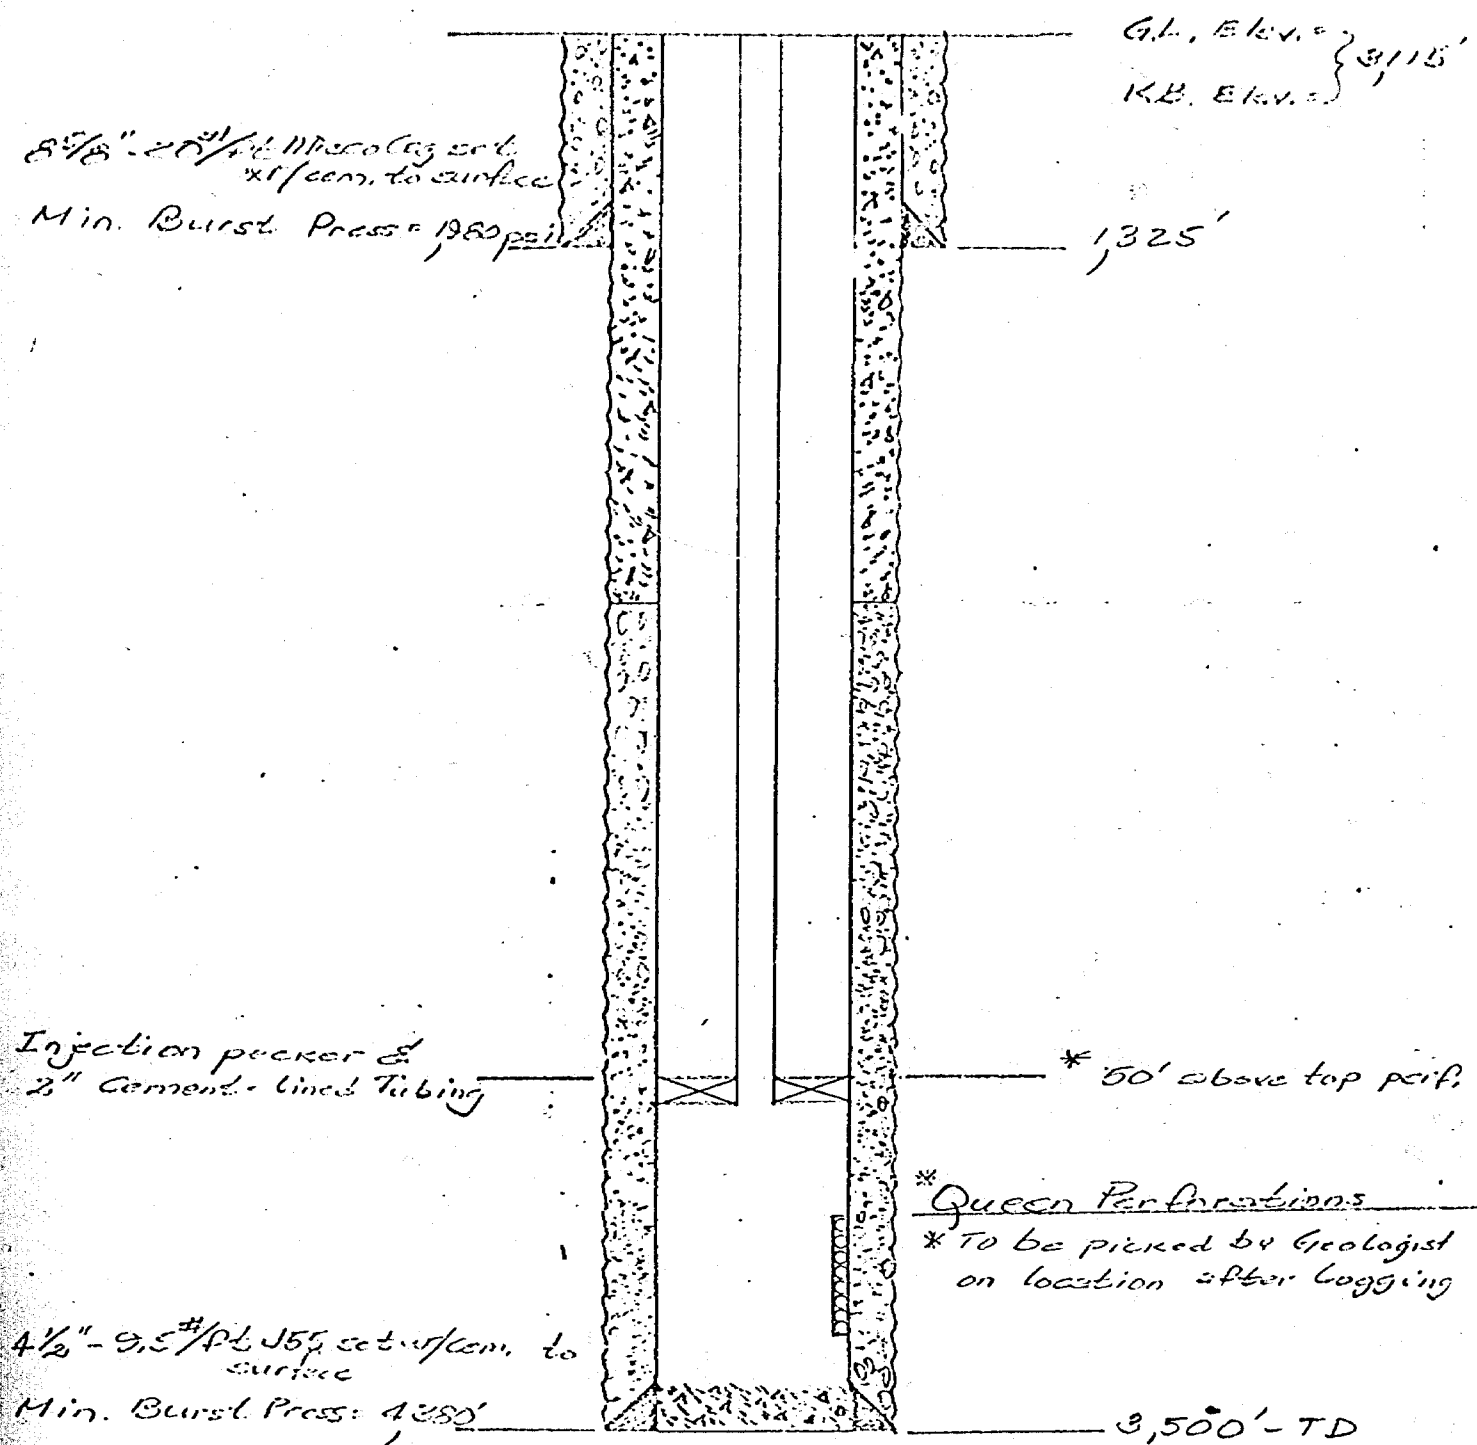 G.L. Elev. =
K.B. Elev. =
} 3,115'
8 5/8" - 20#/ft set
w/cem. to surface
Min. Burst Press = psi
1,325'
Injection packer &
2" Cement-lined Tubing
* 50' above top perf.
* Queen Perforations
* To be picked by Geologist
on location after logging
4 1/2" - 9.5#/ft J55 set w/cem. to
surface
Min. Burst Press =
3,500' - TD